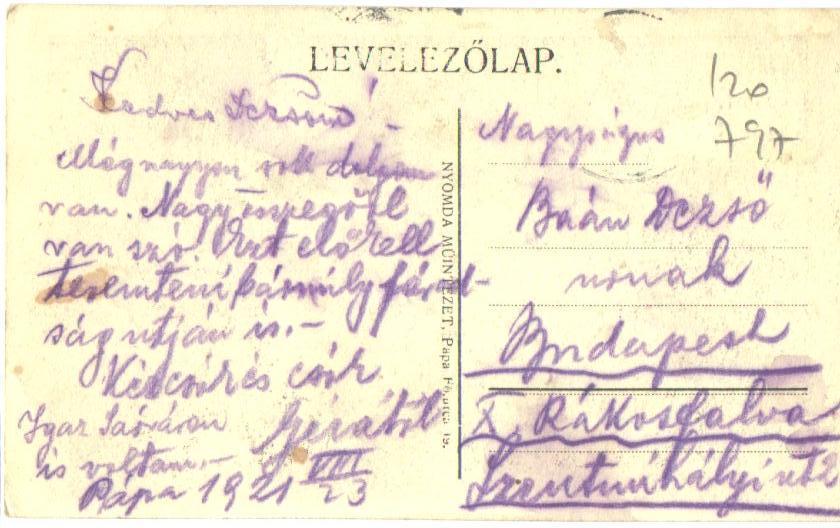 LEVELEZŐLAP.
Kedves Dezsőm! –
Még nagyon sok dolgom
van. Nagy összegről
van szó! Ezt elő kell
teremteni bármily fárad-
ság utján is. –
Kézcsók és csók
Gézától
Igar
is voltam. –
Pápa 1921 VIII/23
NYOMDA MŰINTÉZET, Pápa Fő utca 19.
120
797
Nagyságos
Baán Dezső
urnak
Budapest
X. Rákosfalva
Szentmihályi út